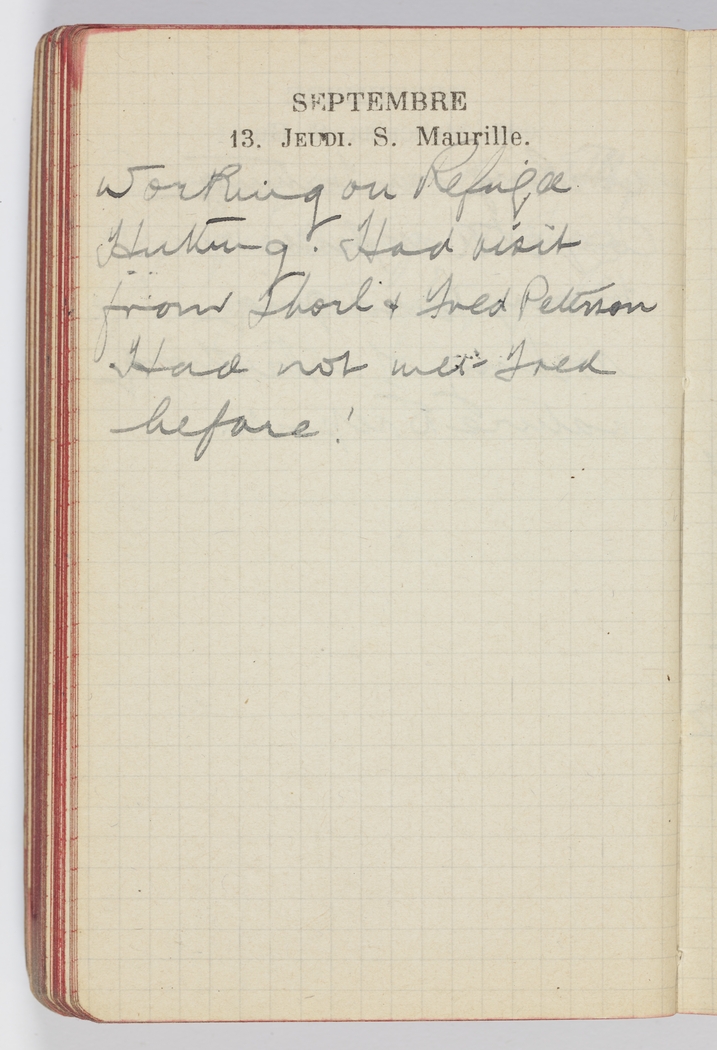 SEPTEMBRE
13. JEUDI. S. Maurille.
Working on Refugee
Hutting. Had visit
from & Fred Petterson
Had not met Fred
before!